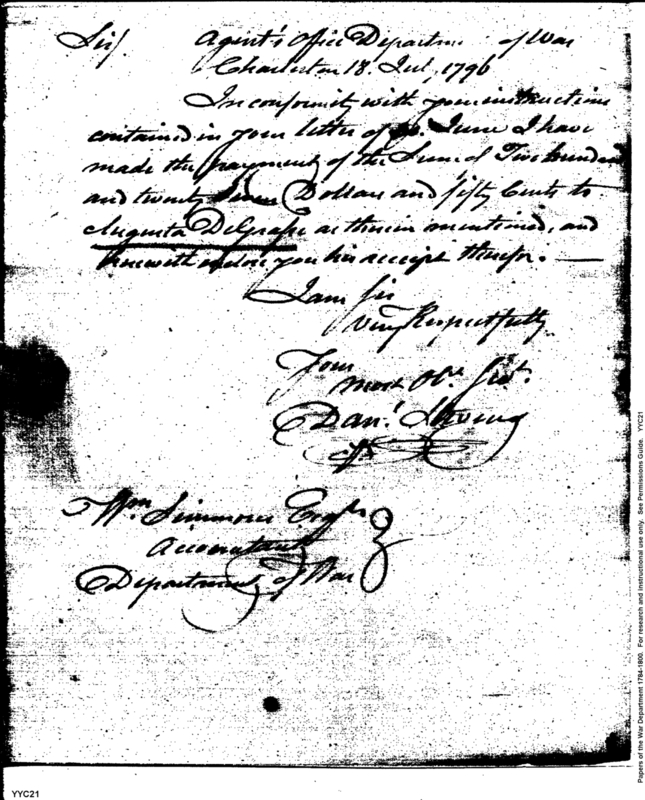 Sir/ Agent's Office Department of War
Charleston 18. July 1796
In conformity with your instructions
contained in your letter of June I have
made the payment of the Sum of Five hundred
and twenty Seven Dollars and fifty Cents to
Augusta DeGrasse as therein mentioned, and
herewith inclose you his receipt therefor. —
I am Sir
Very Respectfully
Your
most Obt. Servt.
Danl. Stevens
Wm Simmons Esqr
Accountant
Department of War
Papers of the War Department 1784-1800. For research and instructional use only. See Permissions Guide. YYC21
YYC21